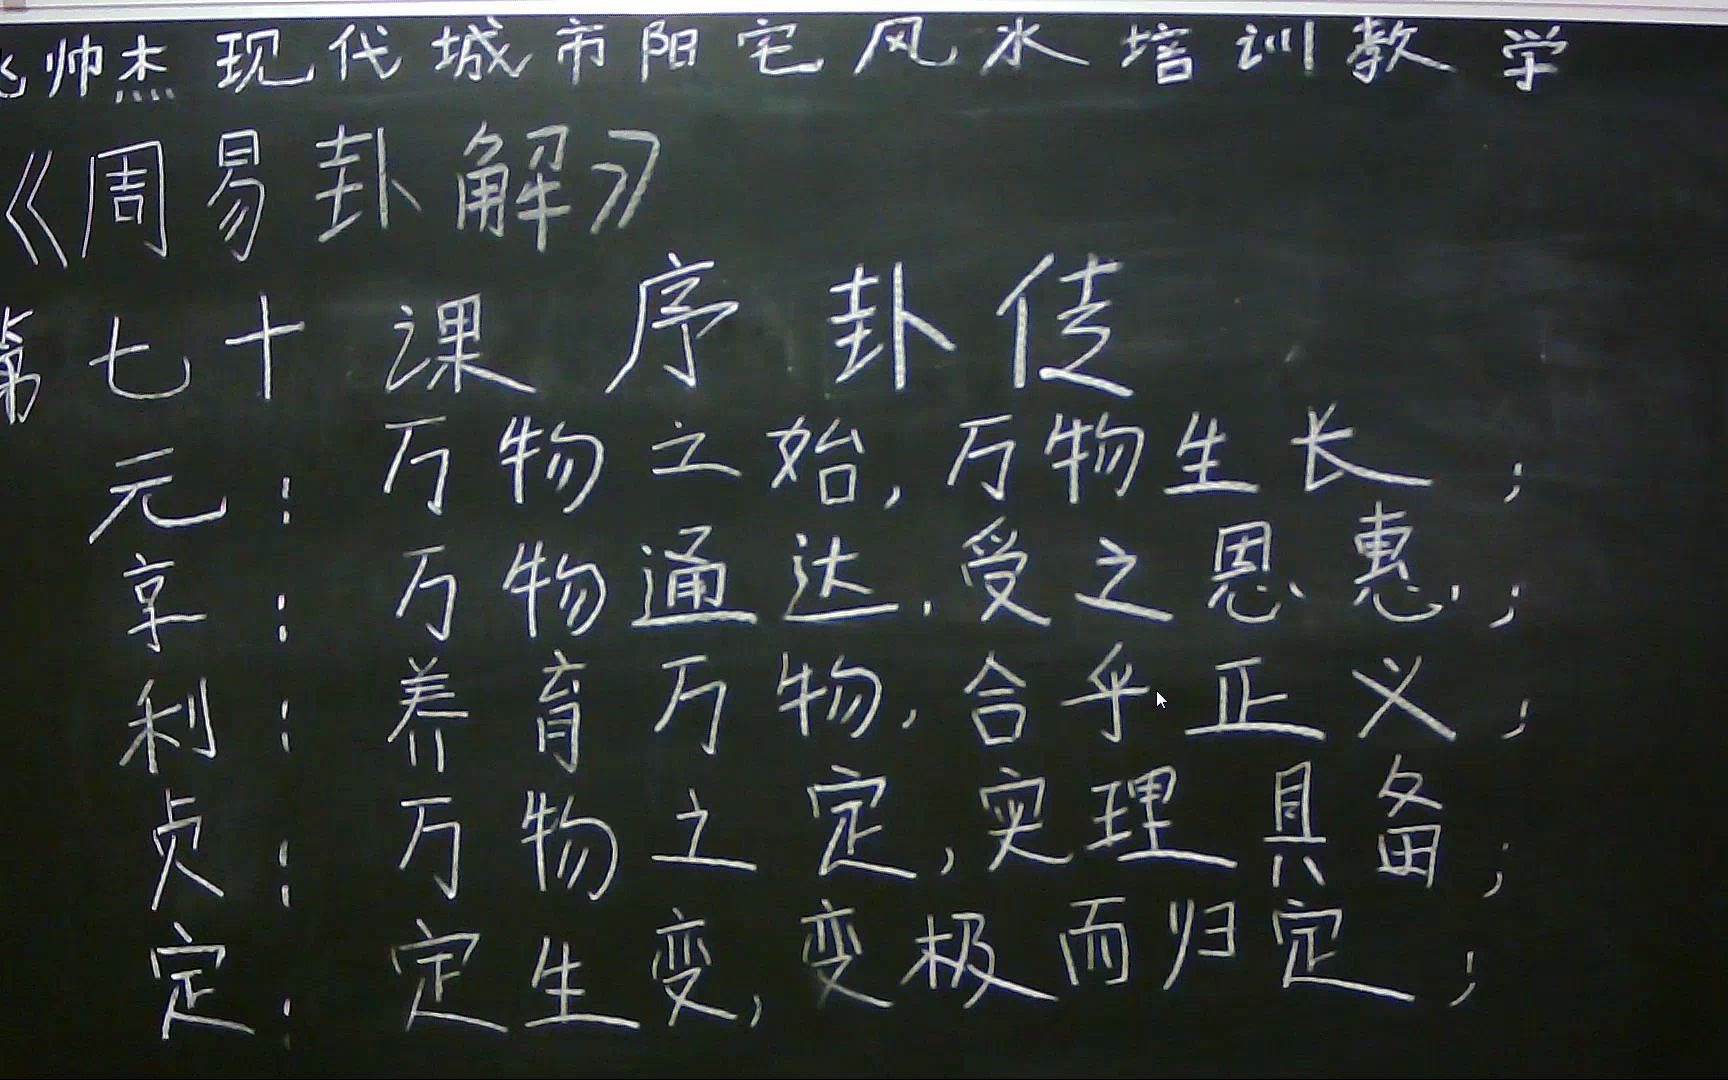 帅杰现代城市阳宅风水培训教学
《周易卦解》
第七十课 序卦传
元：万物之始，万物生长；
享：万物通达，受之恩惠；
利：养育万物，合乎正义；
贞：万物之定，实理具备；
定：定生变，变极而归定；